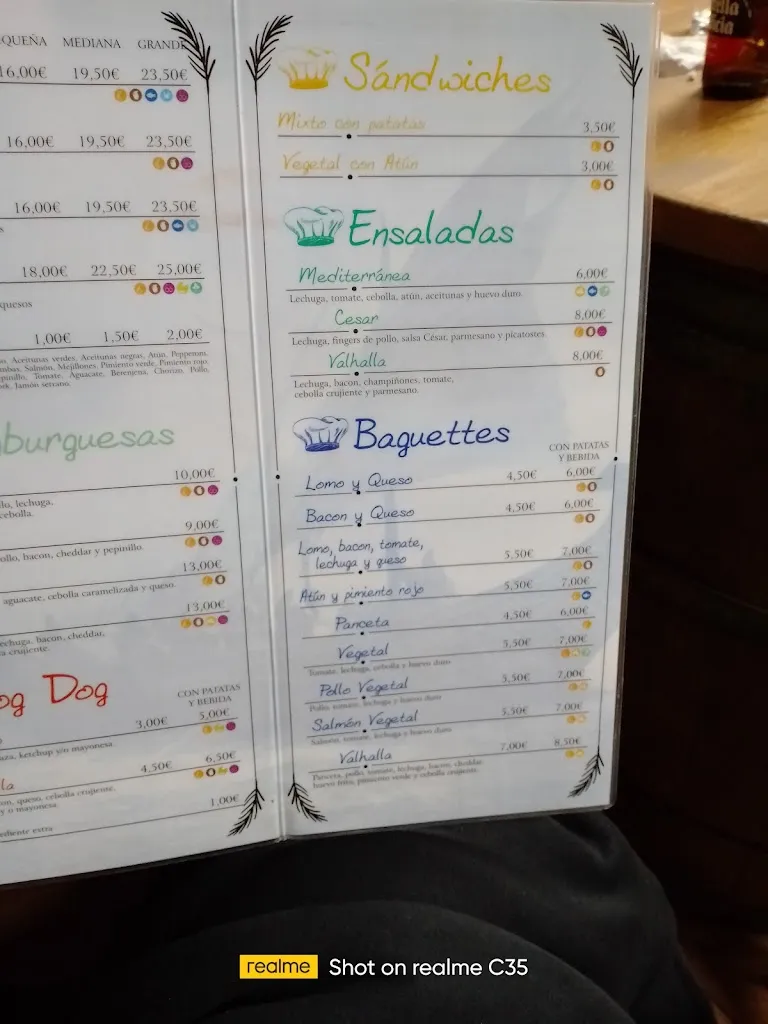 MEDIANA GRANDE
16,00€ 19,50€ 23,50€
16,00€ 19,50€ 23,50€
16,00€ 19,50€ 23,50€
18,00€ 22,50€ 25,00€
quesos
1,00€ 1,50€ 2,00€
Aceitunas verdes, Aceitunas negras, Atún, Pepperoni,
Salmón, Mejillones, Pimiento verde, Pimiento rojo,
Tomate, Aguacate, Berenjena, Chorizo, Pollo,
Jamón serrano.
burguesas
10,00€
lechuga,
cebolla.
9,00€
bacon, cheddar y pepinillo.
13,00€
aguacate, cebolla caramelizada y queso.
13,00€
lechuga, bacon, cheddar,
crujiente.
Dog
CON PATATAS
Y BEBIDA
3,00€ 5,00€
ketchup y/o mayonesa.
4,50€ 6,50€
queso, cebolla crujiente,
y/o mayonesa.
1,00€
extra
Sándwiches
Mixto con patatas 3,50€
Vegetal con Atún 3,00€
Ensaladas
Mediterránea 6,00€
Lechuga, tomate, cebolla, atún, aceitunas y huevo duro.
Cesar 8,00€
Lechuga, fingers de pollo, salsa César, parmesano y picatostes.
Valhalla 8,00€
Lechuga, bacon, champiñones, tomate,
cebolla crujiente y parmesano.
Baguettes
CON PATATAS
Y BEBIDA
Lomo y Queso 4,50€ 6,00€
Bacon y Queso 4,50€ 6,00€
Lomo, bacon, tomate,
lechuga y queso 5,50€ 7,00€
Atún y pimiento rojo 5,50€ 7,00€
Panceta 4,50€ 6,00€
Vegetal 5,50€ 7,00€
Tomate, lechuga, cebolla y huevo duro
Pollo Vegetal 5,50€ 7,00€
Pollo, tomate, lechuga y huevo duro
Salmón Vegetal 5,50€ 7,00€
Salmón, tomate, lechuga y huevo duro
Valhalla 7,00€ 8,50€
Panceta, pollo, tomate, lechuga, bacon, cheddar,
huevo frito, pimiento verde y cebolla crujiente.
realme Shot on realme C35